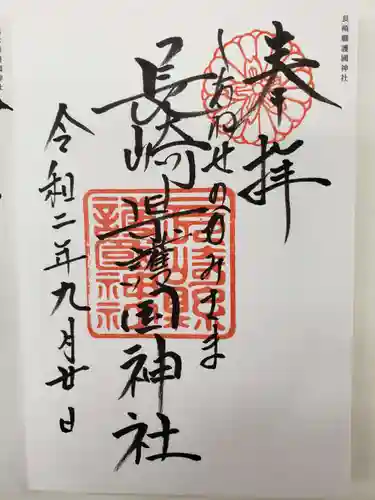 長崎縣護國神社
奉拝
しあわせのおみきさま
長崎県護国神社
令和二年九月廿日